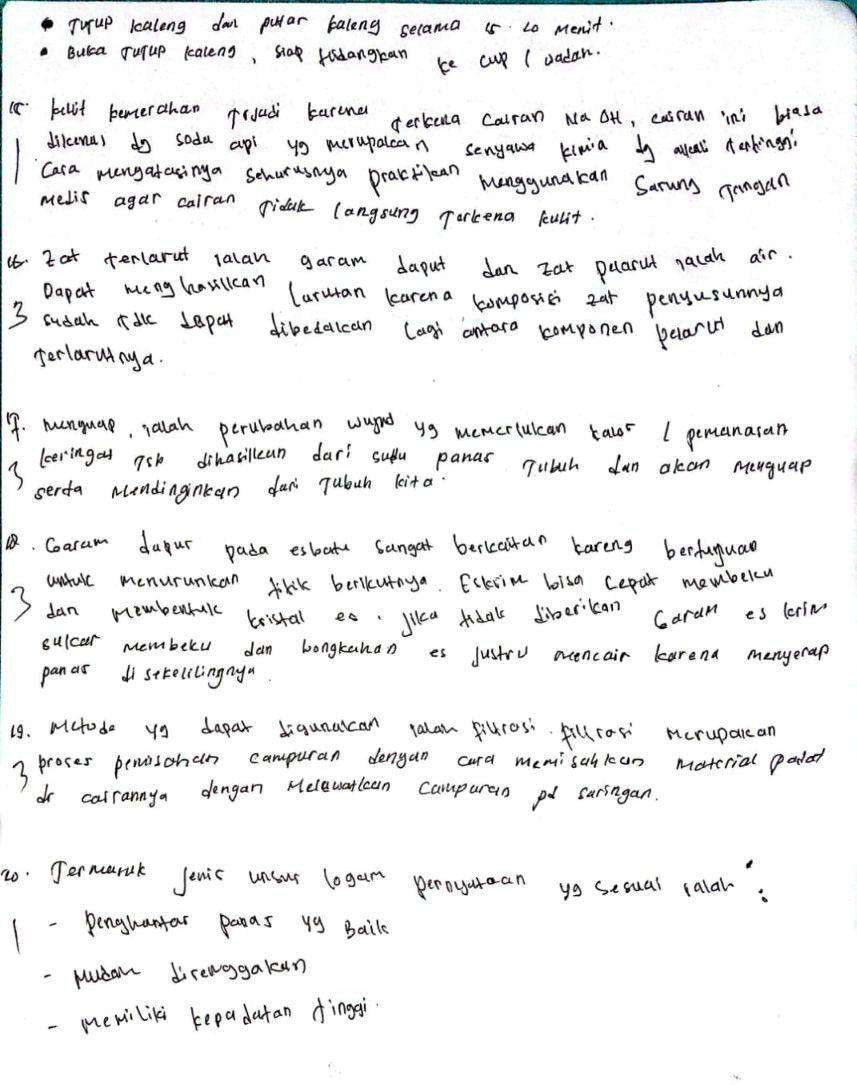 • Tutup kaleng dan putar kaleng selama 15-20 Menit.
• Buka Tutup kaleng, siap hidangkan ke cup / wadah.
15. kulit kemerahan Terjadi karena Terkena Cairan Na OH, cairan ini biasa
1 dikenal dg soda api yg merupakan senyawa kimia dg alkali tertinggi
Cara mengatasinya seharusnya praktikan Menggunakan Sarung Tangan
Medis agar cairan Tidak langsung Terkena kulit.
16. Zat terlarut ialah garam dapur dan zat pelarut ialah air.
3 Dapat menghasilkan larutan karena komposisi zat penyusunnya
sudah tdk dapat dibedakan lagi antara komponen pelarut dan
Terlarutnya.
17. Menguap, ialah perubahan wujud yg memerlukan kalor / pemanasan
3 keringat Tsb dihasilkan dari suhu panas Tubuh dan akan Menguap
serta Mendinginkan dari Tubuh kita.
18. Garam dapur pada esbatu sangat berkaitan karena bertujuan
3 untuk menurunkan titik berikutnya. Eskrim bisa Cepat membeku
dan Membentuk kristal es. Jika tidak diberikan Garam es krim
sukar membeku dan bongkahan es justru mencair karena menyerap
panas di sekelilingnya.
19. Metode yg dapat digunakan ialah filtrasi. filtrasi Merupakan
3 proses pemisahan campuran dengan cara memisahkan Material padat
dr cairannya dengan Melewatkan Campuran pd saringan.
20. Termasuk Jenis unsur logam pernyataan yg sesuai ialah :
1 - Penghantar panas yg Baik
- Mudah direnggakan
- Memiliki kepadatan tinggi.